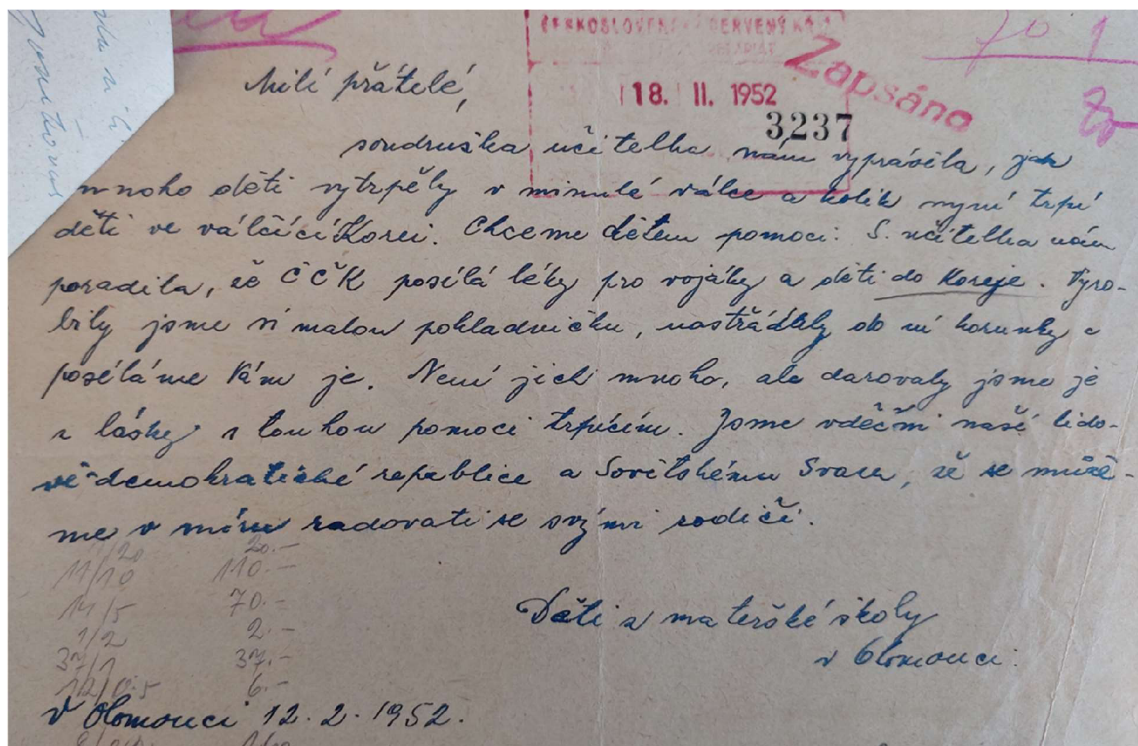 ČESKOSLOVENSKÝ ČERVENÝ KŘÍŽ
Zapsáno
18. II. 1952
3237
70 1
Milí přátelé,
soudružka učitelka nám vyprávěla, jak
mnoho děti vytrpěly v minulé válce a kolik nyní trpí
děti ve válčící Koreji. Chceme dětem pomoci. S. učitelka nám
poradila, že ČČK posílá léky pro vojáky a děti do Koreje. Vyro-
bily jsme si malou pokladničku, nastřádaly do ní korunky a
posíláme Vám je. Není jich mnoho, ale darovaly jsme je
z lásky s touhou pomoci trpícím. Jsme vděčni naší lido-
vě-demokratické republice a Sovětskému Svazu, že se může-
me v míru radovati se svými rodiči.
1/20 20.-
11/10 110.-
14/5 70.-
1/2 2.-
37/1 37.-
12/0.5 6.-
Děti z mateřské školy
v Olomouci.
V Olomouci 12. 2. 1952.